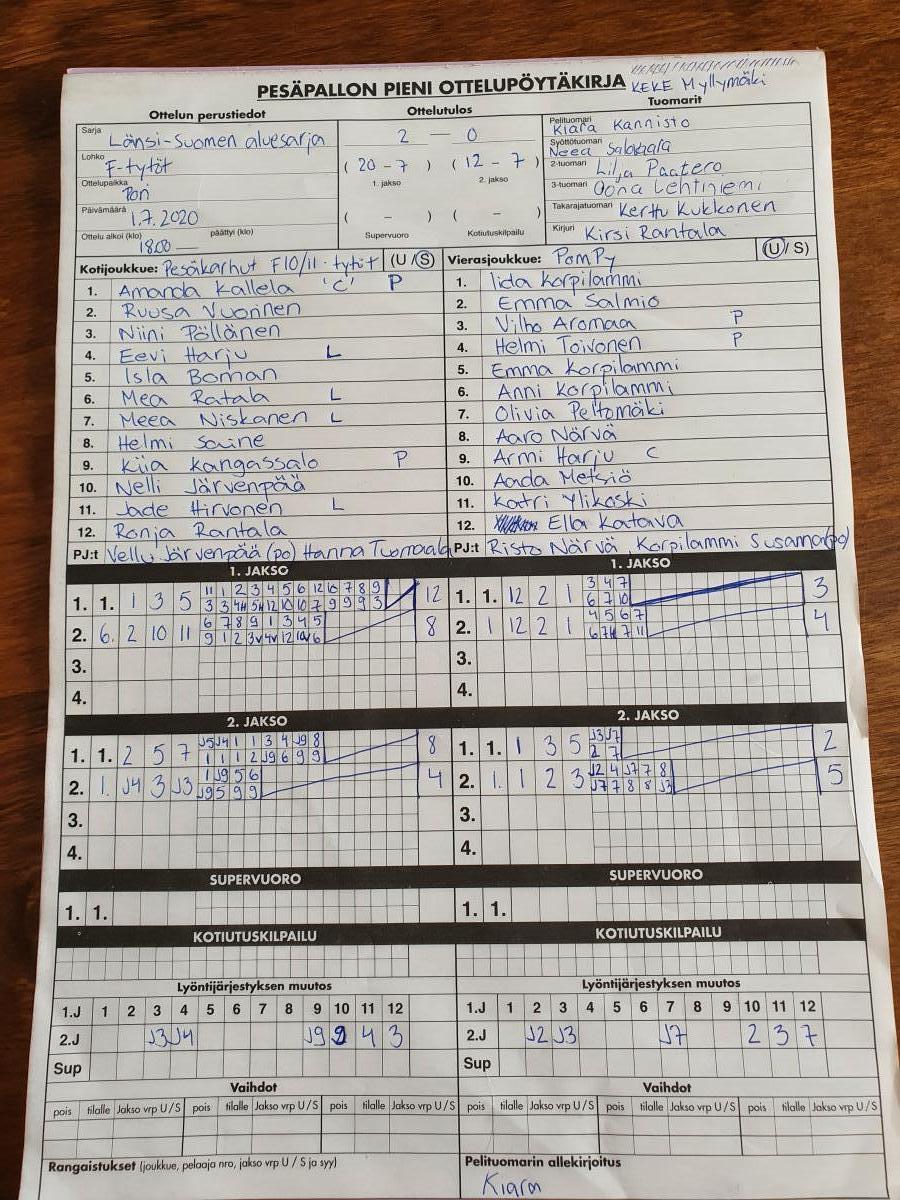 PESÄPALLON PIENI OTTELUPÖYTÄKIRJA KEKE Myllymäki
Ottelun perustiedot
Sarja Länsi-Suomen aluesarja
Lohko F-tytöt
Ottelupaikka Pori
Päivämäärä 1.7.2020
Ottelu alkoi (klo) 18.00 päättyi (klo)
Ottelutulos
2 — 0
( 20 - 7 ) ( 12 - 7 )
1. jakso 2. jakso
( - ) ( - )
Supervuoro Kotiutuskilpailu
Tuomarit
Pelituomari Kiara Kannisto
Syöttötuomari Neea Salokaala
2-tuomari Lilja Paatero
3-tuomari Oona Lehtiniemi
Takarajatuomari Kerttu Kukkonen
Kirjuri Kirsi Rantala
Kotijoukkue: Pesäkarhut F10/11-tytöt (U/S)
1. Amanda Kallela 'C' P
2. Ruusa Vuorinen
3. Niini Pöllänen
4. Eevi Harju L
5. Isla Boman
6. Mea Ratala L
7. Meea Niskanen L
8. Helmi Saine
9. Kiia Kangassalo P
10. Nelli Järvenpää
11. Jade Hirvonen L
12. Ronja Rantala
PJ:t Vellu Järvenpää (po) Hanna Tuomaala
Vierasjoukkue: PomPy (U/S)
1. Iida Korpilammi
2. Emma Salmio
3. Vilho Aromaa P
4. Helmi Toivonen P
5. Emma Korpilammi
6. Anni Korpilammi
7. Olivia Peltomäki
8. Aaro Närvä
9. Armi Harju C
10. Aada Metsiö
11. Katri Ylikoski
12. Ella Katava
PJ:t Risto Närvä, Korpilammi Susanna (po)
1. JAKSO
1. 1. 1 3 5 11 1 2 3 4 5 6 12 10 7 8 9 12
3 3 4H 5H 12 10 10 7 9 9 9 3
2. 6. 2 10 11 6 7 8 9 1 3 4 5 8
9 1 2 3V 4V 12 10V 6
3.
4.
1. JAKSO
1. 1. 12 2 1 3 4 7 3
6 7 10
2. 1 12 2 1 4 5 6 7 4
6 7H 7 11
3.
4.
2. JAKSO
1. 1. 2 5 7 J5 J4 1 1 3 4 J9 8 8
1 1 1 2 J9 6 9 9
2. 1. J4 3 J3 1 J9 5 6 4
J9 5 9 9
3.
4.
2. JAKSO
1. 1. 1 3 5 J3 J7 2
2 7
2. 1. 1 2 3 J2 4 J7 7 8 5
J7 7 8 8 J3
3.
4.
SUPERVUORO
1. 1.
SUPERVUORO
1. 1.
KOTIUTUSKILPAILU
KOTIUTUSKILPAILU
Lyöntijärjestyksen muutos
1.J 1 2 3 4 5 6 7 8 9 10 11 12
2.J J3 J4 J9 2 4 3
Sup
Lyöntijärjestyksen muutos
1.J 1 2 3 4 5 6 7 8 9 10 11 12
2.J J2 J3 J7 2 3 7
Sup
Vaihdot
pois tilalle Jakso vrp U/S pois tilalle Jakso vrp U/S pois tilalle Jakso vrp U/S
Vaihdot
pois tilalle Jakso vrp U/S pois tilalle Jakso vrp U/S pois tilalle Jakso vrp U/S
Rangaistukset (joukkue, pelaaja nro, jakso vrp U / S ja syy)
Pelituomarin allekirjoitus
Kiara